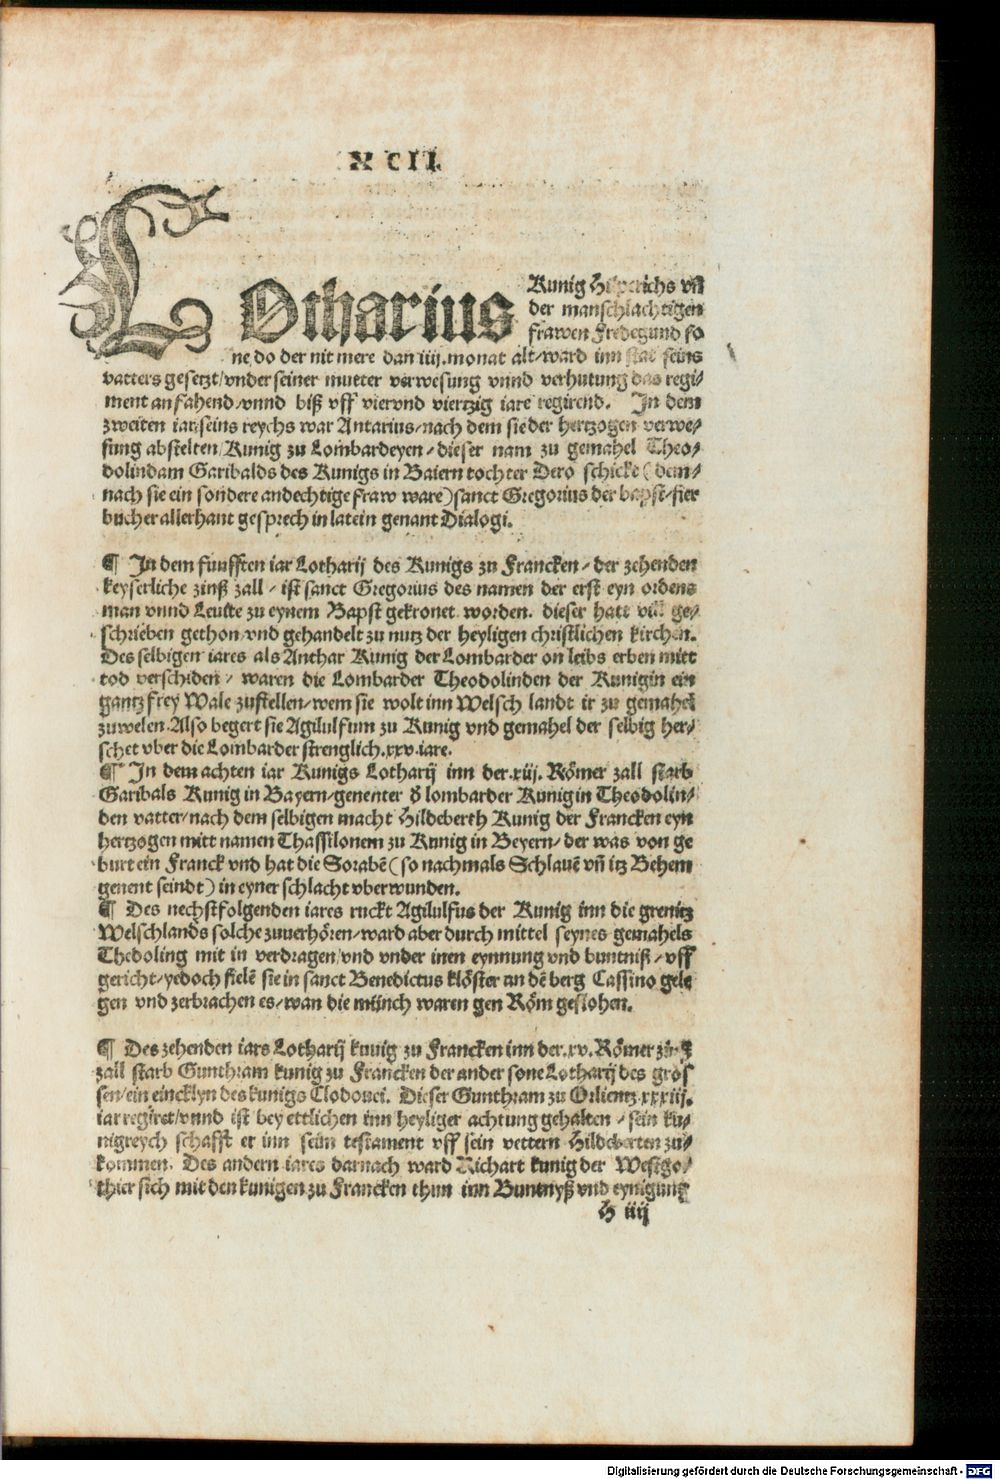 XCII.
LOtharius Kunig Hilperichs vñ
der manschlachtigen
frawen Fredegund so
ne do der nit mere dan iiij. monat alt/ ward inn stat seins
vatters gesetzt/ vnder seiner mutter verwesung vnnd verhutung das regi/
ment anfahend/ vnnd biß vff viervnd viertzig iare regirend. In dem
zweiten iar/ seins reychs war Antarius/ nach dem sie der hertzogen verwe/
sung abstelten/ Kunig zu Lombardeyen/ dieser nam zu gemahel Theo/
dolindam Garibalds des Kunigs in Baiern tochter Dero schicke (dem/
nach sie ein sondere andechtige fraw ware) sanct Gregorius der bapst/ fier
bucher allerhant gesprech in latein genant Dialogi.
¶ In dem funfften iar Lotharij des Kunigs zu Francken/ der zehenden
keyserliche zinß zall/ ist sanct Gregorius des namen der erst eyn ordens
man vnnd Leuite zu eynem Bapst gekronet worden. dieser hatt vill ge/
schrieben gethon vnd gehandelt zu nutz der heyligen christlichen kirchen.
Des selbigen iares als Anthar Kunig der Lombarder on leibs erben mitt
tod verschiden/ waren die Lombarder Theodolinden der Kunigin ein
gantz frey Wale zustellen/ wem sie wolt inn Welsch landt ir zu gemahel
zuwelen. Also begert sie Agilulfum zu Kunig vnd gemahel der selbig her/
schet vber die Lombarder strenglich .xxv. iare.
¶ In dem achten iar Kunigs Lotharij inn der .xiij. Römer zall starb
Garibals Kunig in Bayern/ genenter ď lombarder Kunigin Theodolin/
den vatter/ nach dem selbigen macht Hildeberth Kunig der Francken eyn
hertzogen mitt namen Thassilonem zu Kunig in Beyern/ der was von ge
burt ein Franck vnd hat die Sorabē (so nachmals Schlauē vñ itz Behem
genent seindt) in eyner schlacht vberwunden.
¶ Des nechstfolgenden iares ruckt Agilulfus der Kunig inn die grenitz
Welschlands solche zuuerhören/ ward aber durch mittel seynes gemahels
Thedoling mit in verdragen/ vnd vnder inen eynnung vnd buntniß/ vff
gericht/ yedoch fielē sie in sanct Benedictus klöster an dē berg Cassino gele
gen vnd zerbrachen es/ wan die münch waren gen Röm geflohen.
¶ Des zehenden iars Lotharij kunig zu Francken inn der .xv. Römer zinß
zall starb Gunthram kunig zu Francken der ander sone Lotharij des gros
sen/ ein eincklyn des kunigs Clodouei. Dieser Gunthram zu Orlientz .xxxiij.
iar regiret/ vnnd ist bey ettlichen inn heyliger achtung gehalten/ sein ku/
nigreych schafft er inn seim testament vff sein vettern Hildeberten zu/
kommen. Des andern iares darnach ward Richart kunig der Westgo/
thier sich mit den kunigen zu Francken thun inn Buntnyß vnd eynigung
H iiij
Digitalisierung gefördert durch die Deutsche Forschungsgemeinschaft - DFG